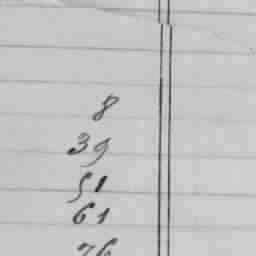 8
39
51
61
76